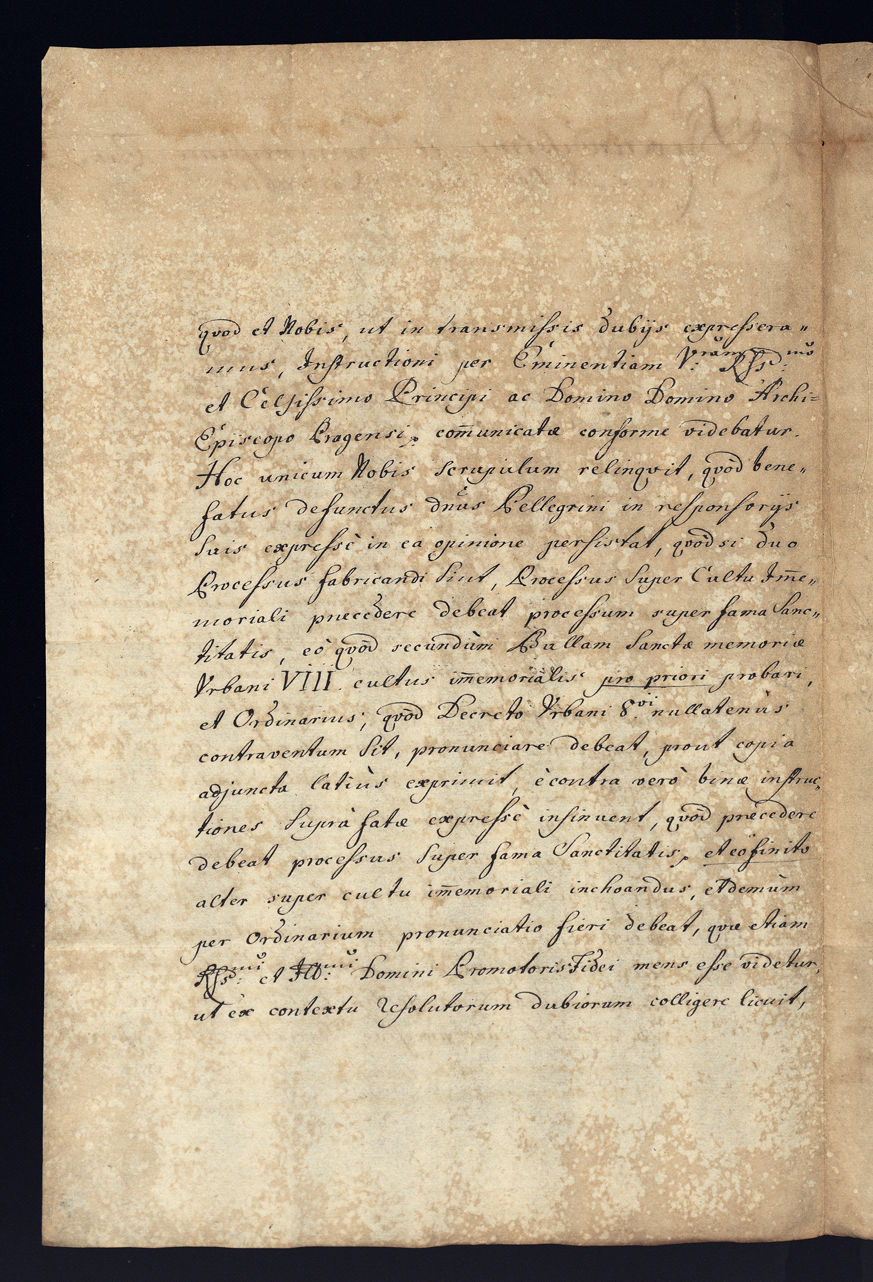 quod et Nobis, ut in transmissis dubijs expressera„
mus, Instructioni per Eminentiam V:ram Rssd:mõ
et Celsissimo Principi ac Domino Domino Archi=
Episcopo Pragensi, com̃unicatæ conforme videbatur.
Hoc unicum Nobis scrupulum relinqvit, quòd bene„
fatus defunctus dñus Pellegrini in responsorijs
suis expressè in ea opinione persistat, quòd si duo
Processus fabricandi sint, Processus super Cultu Im̃e„
moriali præcedere debeat processum super fama Sanc„
titatis, eò quòd secundùm Bullam Sanctæ memoriæ
Urbani VIII. cultus im̃emorialis pro priori probari,
et Ordinarius, quòd Decreto Urbani 8.vi nullatenùs
contraventum sit, pronunciare debeat, prout copia
adjuncta latiùs exprimit, è contra verò binæ instruc„
tiones suprà fatæ expressè insinuent, quòd præcedere
debeat processus super fama Sanctitatis, et eô finito
alter super cultu im̃emoriali inchoandus, et demùm
per Ordinarium pronunciatio fieri debeat, quæ etiam
Rssd:mi et Ill:mi Domini Promotoris Fidei mens esse videtur,
ut èx contextu resolutorum dubiorum colligere licuit,